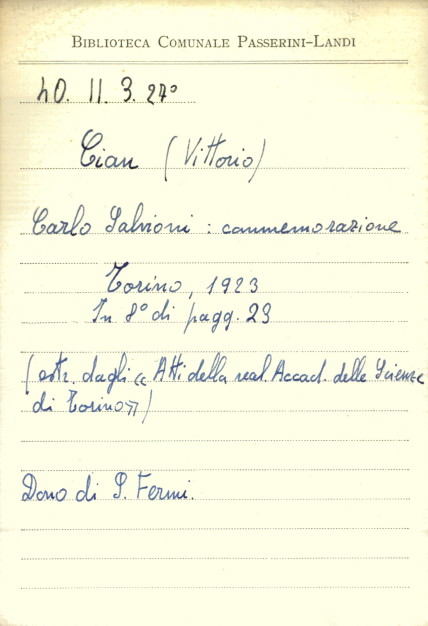 BIBLIOTECA COMUNALE PASSERINI-LANDI
40. II. 3. 27°
Cian (Vittorio)
Carlo Salvioni : commemorazione
Torino, 1923
In 8° di pagg. 23
(estr. dagli « Atti della real. Accad. delle Scienze
di Torino »)
Dono di S. Fermi.